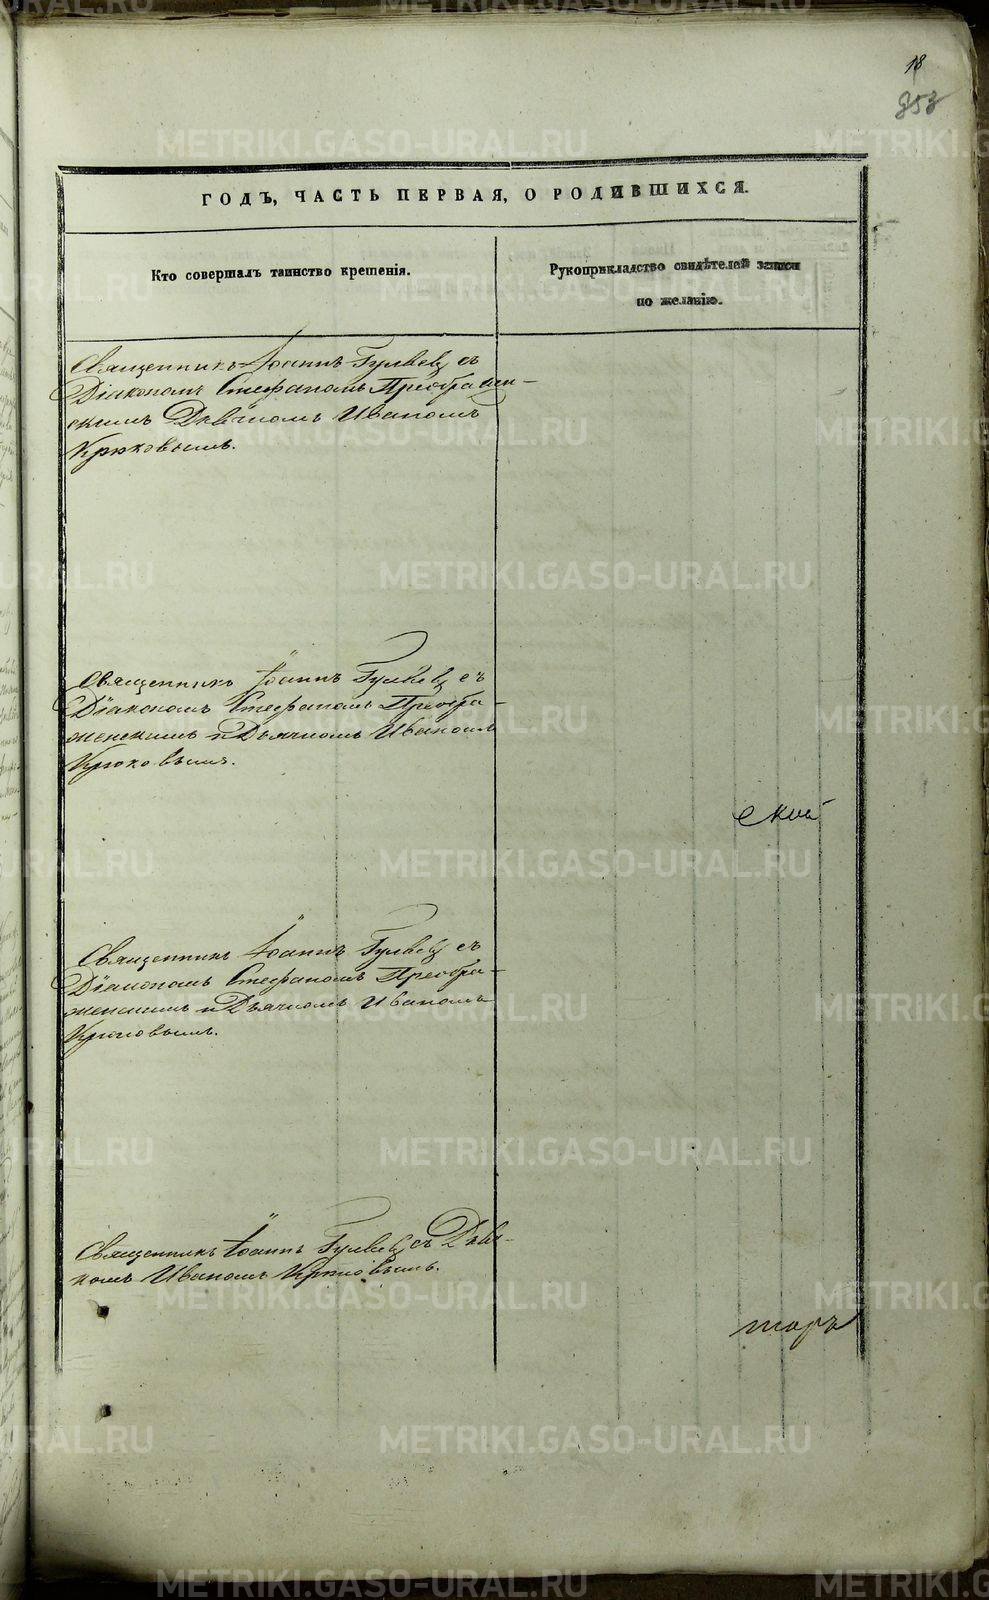 18
253
ГОДЪ, ЧАСТЬ ПЕРВАЯ, О РОДИВШИХСЯ.
Кто совершалъ таинство крещенія.
Рукоприкладство свидѣтелей записи
по желанію.
Священникъ Іоаннъ съ
Діакономъ Стефаномъ Преображен-
скимъ Дьячкомъ Иваномъ
Крюковымъ.
Священникъ Іоаннъ съ
Діакономъ Стефаномъ Преобра-
женскимъ и Дьячкомъ Иваномъ
Крюковымъ.
ской
Священникъ Іоаннъ съ
Діакономъ Стефаномъ Преобра-
женскимъ и Дьячкомъ Иваномъ
Крюковымъ.
Священникъ Іоаннъ съ Дьяч-
комъ Иваномъ Крюковымъ.
торъ
METRIKI.GASO-URAL.RU